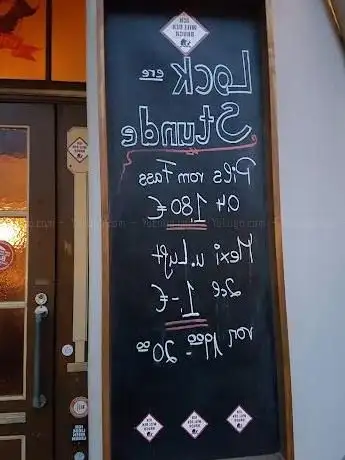 Lock ere
Stunde
Pils vom Fass
0,4 1,80 €
Mexi u. Luft
2cl 1,- €
von 19⁰⁰ - 20⁰⁰